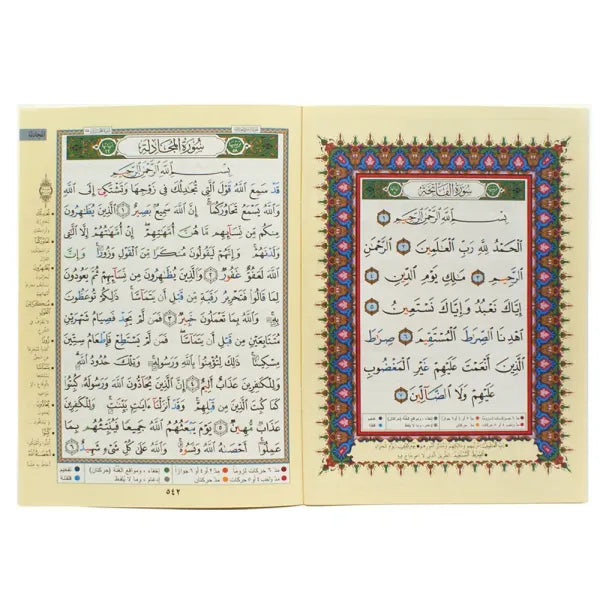 سُورَةُ الْفَاتِحَةِ
بِسْمِ ٱللَّهِ ٱلرَّحْمَٰنِ ٱلرَّحِيمِ ١
ٱلْحَمْدُ لِلَّهِ رَبِّ ٱلْعَٰلَمِينَ ٢ ٱلرَّحْمَٰنِ
ٱلرَّحِيمِ ٣ مَٰلِكِ يَوْمِ ٱلدِّينِ ٤
إِيَّاكَ نَعْبُدُ وَإِيَّاكَ نَسْتَعِينُ ٥
ٱهْدِنَا ٱلصِّرَٰطَ ٱلْمُسْتَقِيمَ ٦ صِرَٰطَ
ٱلَّذِينَ أَنْعَمْتَ عَلَيْهِمْ غَيْرِ ٱلْمَغْضُوبِ
عَلَيْهِمْ وَلَا ٱلضَّآلِّينَ ٧
سُورَةُ الْمُجَادلَةِ
بِسْمِ ٱللَّهِ ٱلرَّحْمَٰنِ ٱلرَّحِيمِ
قَدْ سَمِعَ ٱللَّهُ قَوْلَ ٱلَّتِي تُجَٰدِلُكَ فِي زَوْجِهَا وَتَشْتَكِيٓ إِلَى ٱللَّهِ
وَٱللَّهُ يَسْمَعُ تَحَاوُرَكُمَآ إِنَّ ٱللَّهَ سَمِيعٌۢ بَصِيرٌ ١ ٱلَّذِينَ يُظَٰهِرُونَ
مِنكُم مِّن نِّسَآئِهِم مَّا هُنَّ أُمَّهَٰتِهِمْ إِنْ أُمَّهَٰتُهُمْ إِلَّا ٱلَّٰٓـِٔي
وَلَدْنَهُمْ وَإِنَّهُمْ لَيَقُولُونَ مُنكَرًا مِّنَ ٱلْقَوْلِ وَزُورًا وَإِنَّ
ٱللَّهَ لَعَفُوٌّ غَفُورٌ ٢ وَٱلَّذِينَ يُظَٰهِرُونَ مِن نِّسَآئِهِمْ ثُمَّ يَعُودُونَ
لِمَا قَالُوا۟ فَتَحْرِيرُ رَقَبَةٍ مِّن قَبْلِ أَن يَتَمَآسَّا ذَٰلِكُمْ تُوعَظُونَ
بِهِۦ وَٱللَّهُ بِمَا تَعْمَلُونَ خَبِيرٌ ٣ فَمَن لَّمْ يَجِدْ فَصِيَامُ شَهْرَيْنِ
مُتَتَابِعَيْنِ مِن قَبْلِ أَن يَتَمَآسَّا فَمَن لَّمْ يَسْتَطِعْ فَإِطْعَامُ سِتِّينَ
مِسْكِينًا ذَٰلِكَ لِتُؤْمِنُوا۟ بِٱللَّهِ وَرَسُولِهِۦ وَتِلْكَ حُدُودُ ٱللَّهِ
وَلِلْكَٰفِرِينَ عَذَابٌ أَلِيمٌ ٤ إِنَّ ٱلَّذِينَ يُحَآدُّونَ ٱللَّهَ وَرَسُولَهُۥ كُبِتُوا۟
كَمَا كُبِتَ ٱلَّذِينَ مِن قَبْلِهِمْ وَقَدْ أَنزَلْنَآ ءَايَٰتٍۭ بَيِّنَٰتٍ وَلِلْكَٰفِرِينَ
عَذَابٌ مُّهِينٌ ٥ يَوْمَ يَبْعَثُهُمُ ٱللَّهُ جَمِيعًا فَيُنَبِّئُهُم بِمَا
عَمِلُوٓا۟ أَحْصَىٰهُ ٱللَّهُ وَنَسُوهُ وَٱللَّهُ عَلَىٰ كُلِّ شَيْءٍ شَهِيدٌ ٦
مدّ ٦ حركات لزوماً مدّ ٢ أو ٤ أو ٦ جوازاً إخفاء، ومواقع الغُنَّة (حركتان) تفخيم
مدّ واجب ٤ أو ٥ حركات مدّ حركتان إدغام، وما لا يُلفظ قلقلة
٥٤٢
المجادلة